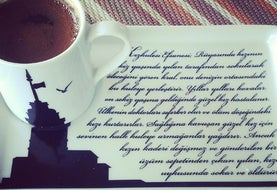 Kızkulesi Efsanesi: Rüyasında kızının
kız yaşında yılan tarafından sokularak
öleceğini gören kral, onu denizin ortasındaki
bu kuleye yerleştirir. Yıllar yılları kovalar
on sekiz yaşına geldiğinde güzel kız hastalanır.
Ülkenin doktorları seferber olur ve olanı düşündaki
kızı kurtarırlar. Sağlığına kavuşan güzel kız için
sevinen halk kuleye armağanlar yağdırır. Ancak
kızın kaderi değişmez ve gönderilen bir
üzüm sepetinden çıkan yılan, kızı
uykusunda sokar ve öldürür